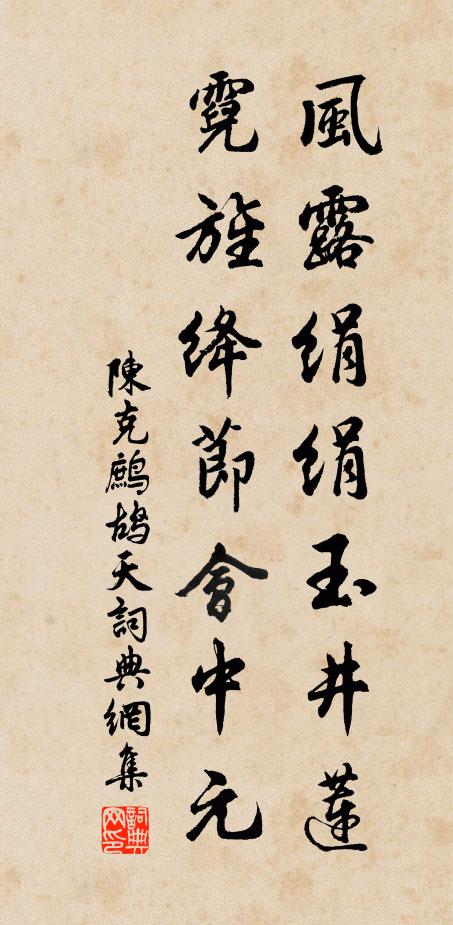 風露絹絹玉井蓮
霓旌绛節會中元
陳克鷓鴣天詞典網集
詞典网印